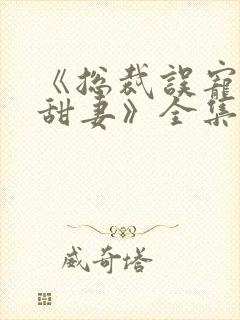 《總裁誤寵
甜妻》全集
威奇塔